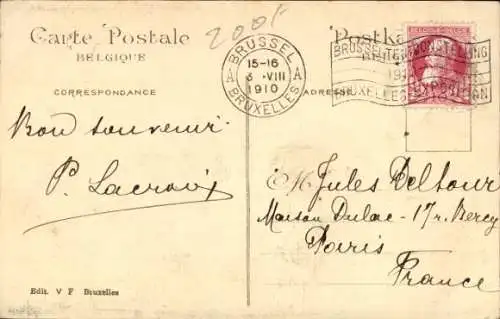 200f
Carte Postale
BELGIQUE
Postka
BRUSSEL
15-16
3 ·VIII
1910
BRUXELLES
A A
BRUSSEL TENTOONSTELLING
BRUXELLES EXPOSITION
CORRESPONDANCE
ADRESSE
Bon souvenir
P. Lacroix
M. Jules Deltour
Maison Dulac - 17 r. Bercy
Paris
France
Edit. V F Bruxelles